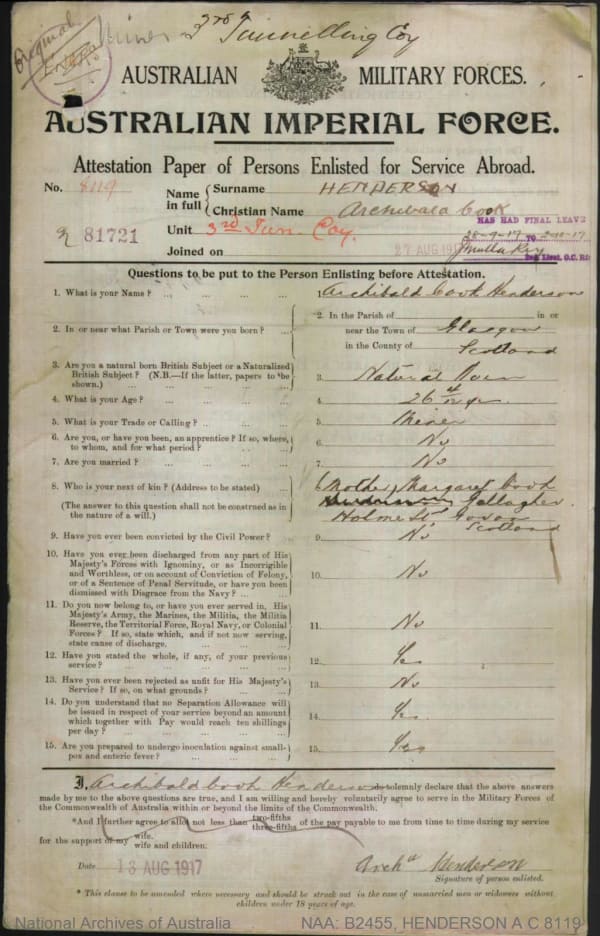 Original
Miner 3rd Tunnelling Coy
AUSTRALIAN MILITARY FORCES.
AUSTRALIAN IMPERIAL FORCE.
Attestation Paper of Persons Enlisted for Service Abroad.
No. 8119
Name in full { Surname HENDERSON
Christian Name Archibald Cook
HAS HAD FINAL LEAVE
81721
Unit 3rd Tun. Coy.
28-9-17 TO 2-10-17
Joined on 27 AUG 1917
Questions to be put to the Person Enlisting before Attestation.
1. What is your Name? ... 1. Archibald Cook Henderson
2. In or near what Parish or Town were you born? ... 2. In the Parish of in or
near the Town of Glasgow
in the County of Scotland
3. Are you a natural born British Subject or a Naturalized
British Subject? (N.B.—If the latter, papers to be
shown.) ... 3. Natural Born
4. What is your Age? ... 4. 26 4/12 yrs
5. What is your Trade or Calling? ... 5. Miner
6. Are you, or have you been, an apprentice? If so, where,
to whom, and for what period? ... 6. No
7. Are you married? ... 7. No
8. Who is your next of kin? (Address to be stated) ... Mother Margaret Cook
(The answer to this question shall not be construed as in
the nature of a will.) Gallagher
Holme St Govan
Scotland
9. Have you ever been convicted by the Civil Power? ... 9. No
10. Have you ever been discharged from any part of His
Majesty's Forces with Ignominy, or as Incorrigible
and Worthless, or on account of Conviction of Felony,
or of a Sentence of Penal Servitude, or have you been
dismissed with Disgrace from the Navy? ... 10. No
11. Do you now belong to, or have you ever served in, His
Majesty's Army, the Marines, the Militia, the Militia
Reserve, the Territorial Force, Royal Navy, or Colonial
Forces? If so, state which, and if not now serving,
state cause of discharge. ... 11. No
12. Have you stated the whole, if any, of your previous
service? ... 12. Yes
13. Have you ever been rejected as unfit for His Majesty's
Service? If so, on what grounds? 13. No
14. Do you understand that no Separation Allowance will
be issued in respect of your service beyond an amount
which together with Pay would reach ten shillings
per day? ... 14. Yes.
15. Are you prepared to undergo inoculation against small-
pox and enteric fever? ... 15. Yes
I, Archibald Cook Henderson do solemnly declare that the above answers
made by me to the above questions are true, and I am willing and hereby voluntarily agree to serve in the Military Forces of
the Commonwealth of Australia within or beyond the limits of the Commonwealth.
*And I further agree to allot not less than two-fifths three-fifths of the pay payable to me from time to time during my service
for the support of my wife. wife and children.
Date 13 AUG 1917 Archd Henderson
Signature of person enlisted.
* This clause to be amended where necessary and should be struck out in the case of unmarried men or widowers without
children under 18 years of age.
National Archives of Australia NAA: B2455, HENDERSON A C 8119